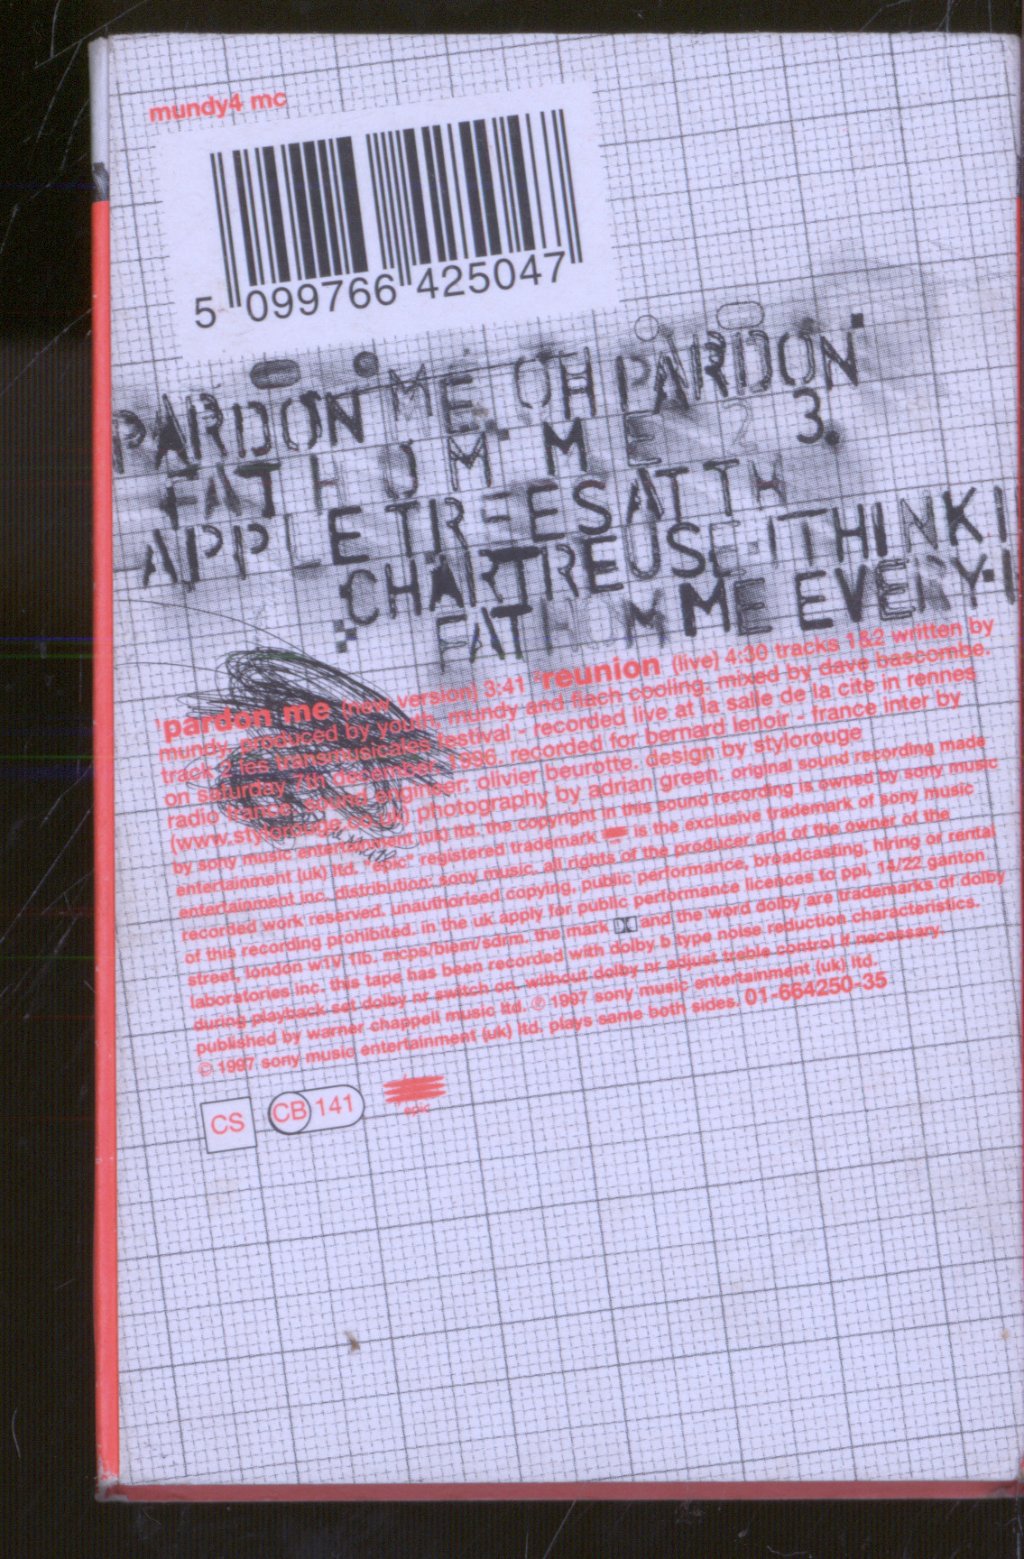 mundy4 mc
5 099766 425047
PARDON ME OH PARDON
FATHOM ME 2 3.
APPLE TREES AT TH
CHARTREUSE·I THINK I
FATHOM ME EVERY·I
¹pardon me (new version) 3:41 ²reunion (live) 4:30 tracks 1&2 written by
mundy. produced by youth, mundy and fiach cooling. mixed by dave bascombe.
track 2 les transmusicales festival - recorded live at la salle de la cite in rennes
on saturday 7th december 1996. recorded for bernard lenoir - france inter by
radio sound engineer: olivier beurotte. design by stylorouge
(www.stylorouge.co.uk) photography by adrian green. original sound recording made
by sony music entertainment (uk) ltd. the copyright in this sound recording is owned by sony music
entertainment (uk) ltd. "epic" registered trademark is the exclusive trademark of sony music
entertainment inc. distribution: sony music. all rights of the producer and of the owner of the
recorded work reserved. unauthorised copying, public performance, broadcasting, hiring or rental
of this recording prohibited. in the uk apply for public performance licences to ppl, 14/22 ganton
street, london w1V 1lb. mcps/biem/sdrm. the mark and the word dolby are trademarks of dolby
laboratories inc. this tape has been recorded with dolby b type noise reduction characteristics.
during playback set dolby nr switch on. without dolby nr adjust treble control if necessary.
published by warner chappell music ltd. ℗ 1997 sony music entertainment (uk) ltd.
© 1997 sony music entertainment (uk) ltd. plays same both sides. 01-664250-35
CS CB 141 epic